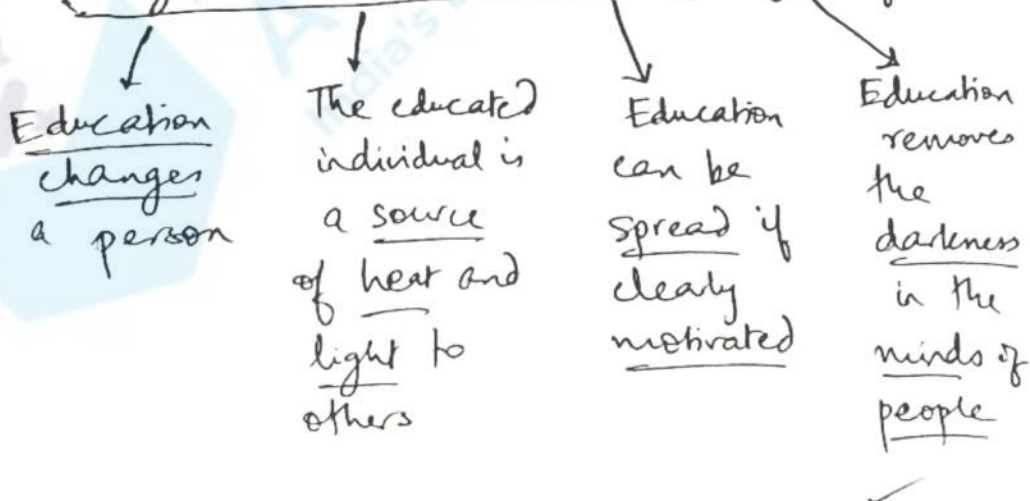 Education
changes
a person
The educated
individual is
a source
of heat and
light to
others
Education
can be
spread if
clearly
motivated
Education
removes
the
darkness
in the
minds of
people
India's